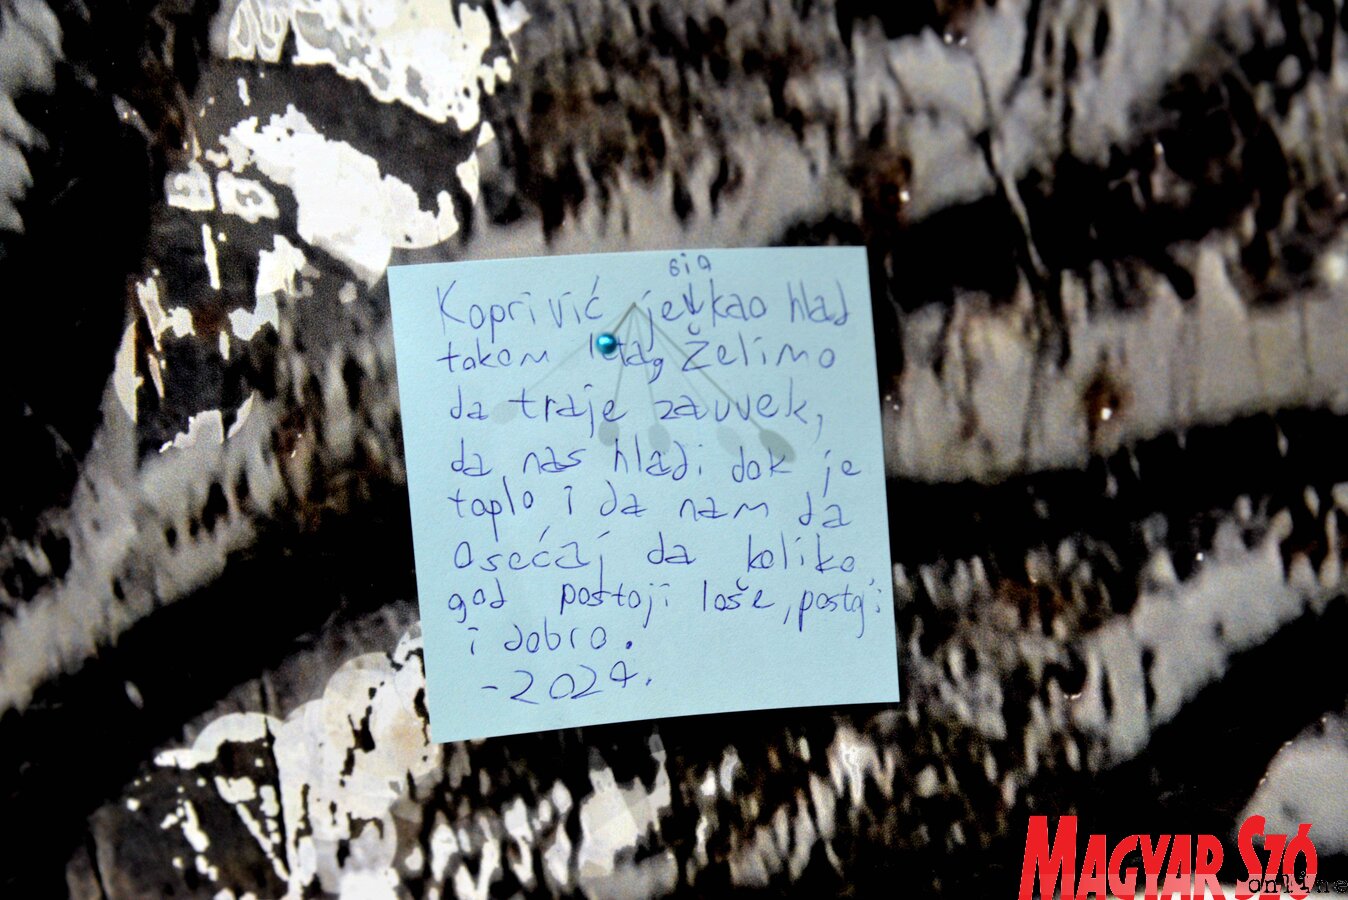 bio
Koprivić je kao hlad
tokom leta, želimo
da traje zauvek,
da nas hladi dok je
toplo i da nam da
osećaj da koliko
god postoji loše, postoji
i dobro.
-2024.
MAGYAR SZÓ
online